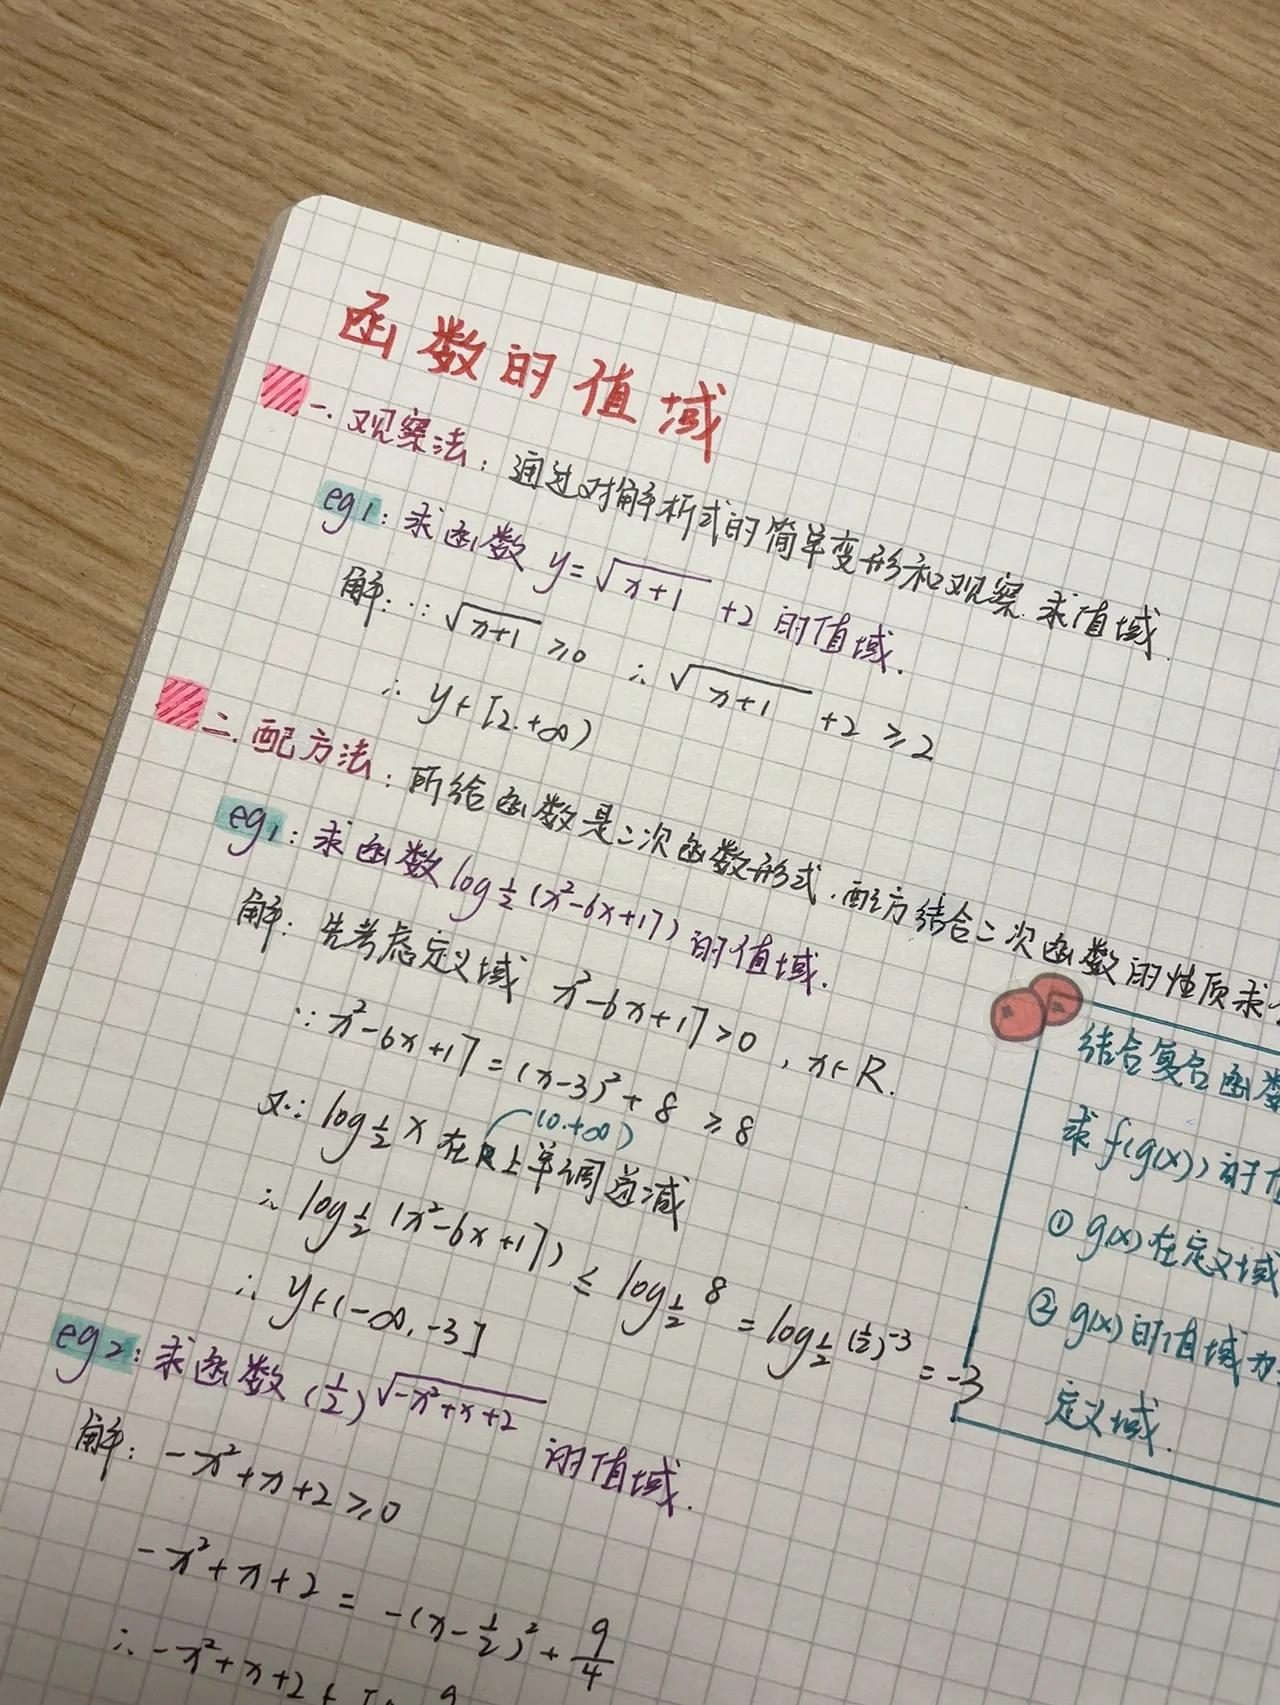 函数的值域
一.观察法：通过对解析式的简单变形和观察.求值域.
eg1：求函数 y=√(x+1) +2 的值域.
解：∵ √(x+1) ≥0 ∴ √(x+1) +2 ≥2
∴ y∈[2.+∞)
二.配方法：所给函数是二次函数形式.配方结合二次函数的性质求
eg1：求函数 log½(x²-6x+17) 的值域.
解：先考虑定义域 x²-6x+17>0 , x∈R.
∵ x²-6x+17 = (x-3)²+8 ≥8
(0.+∞)
又∵ log½x 在R上单调递减
∴ log½(x²-6x+17) ≤ log½8 = log½(½)⁻³ = -3
∴ y∈(-∞,-3]
eg2：求函数 (½)√(-x²+x+2) 的值域.
解：-x²+x+2≥0
-x²+x+2 = -(x-½)²+9/4
∴ -x²+x+2∈[
结合复合函数
求f(g(x))的
① g(x)在定义域
② g(x)的值域为
定义域.